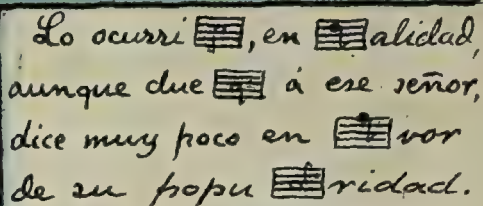 Lo ocurri , en alidad,
aunque due á ese señor,
dice muy poco en vor
de su popu ridad.